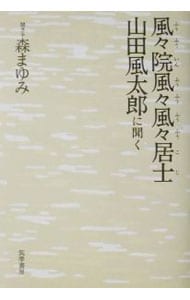 風々院風々風々居士
山田風太郎に聞く
聞き手 森まゆみ
筑摩書房